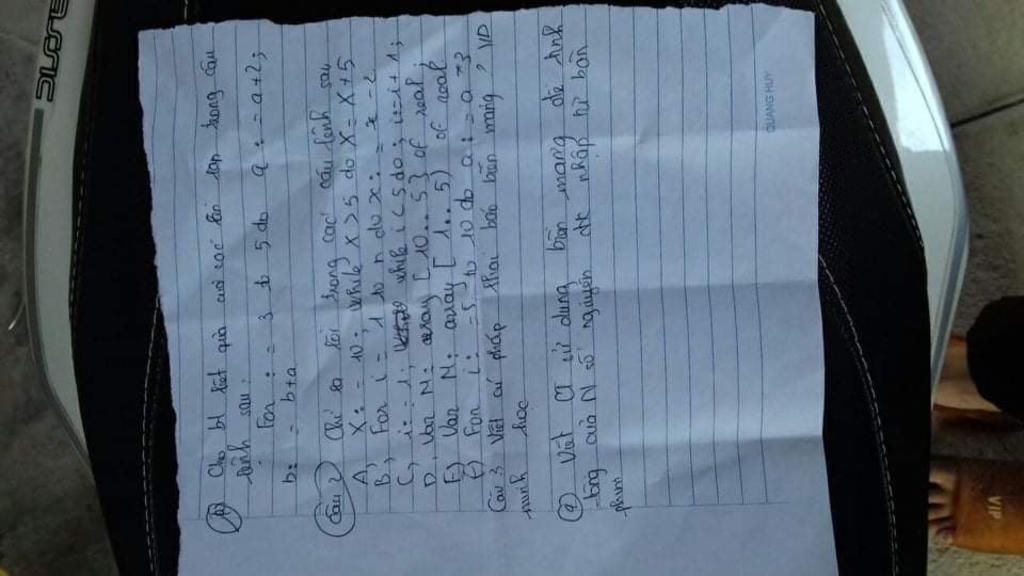 ① Cho bt kết quả của các lần lặp trong câu
lệnh sau:
For i: = 3 to 5 do a: = a+2;
b: = b+a
Câu 2 Chỉ ra lỗi trong các câu lệnh sau
A, X: = 10: while x>5 do X = X+5
B, For i = 1 10 n do x: = x - 2
C, i: = 1; while i < 5 do; i = i + 1;
D, Var N: array [10..5] of real;
E) Var N: array [1..5) of real
f) For i: = 5 to 10 do a: = a + 3
Câu 3 Viết cú pháp khai báo biến mảng? VD
minh học
④ Viết CT sử dụng biến mảng để tính
tổng của N số nguyên đc nhập từ bàn
phím
QUANG HUY
VIP